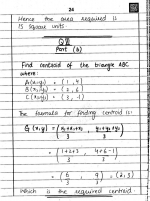 24
Hence the area required is
15 square units.
Q III
Part (b)
Find centroid of the triangle ABC
where:
A(x₁,y₁) = (1, 4)
B(x₂,y₂) = (2, 6)
C(x₃,y₃) = (3, -1)
The formula for finding centroid is:
G(x,y) = (x₁+x₂+x₃ / 3 , y₁+y₂+y₃ / 3)
= (1+2+3 / 3 , 4+6-1 / 3)
= (6 / 3 , 9 / 3) = (2, 3)
Which is the required centroid.